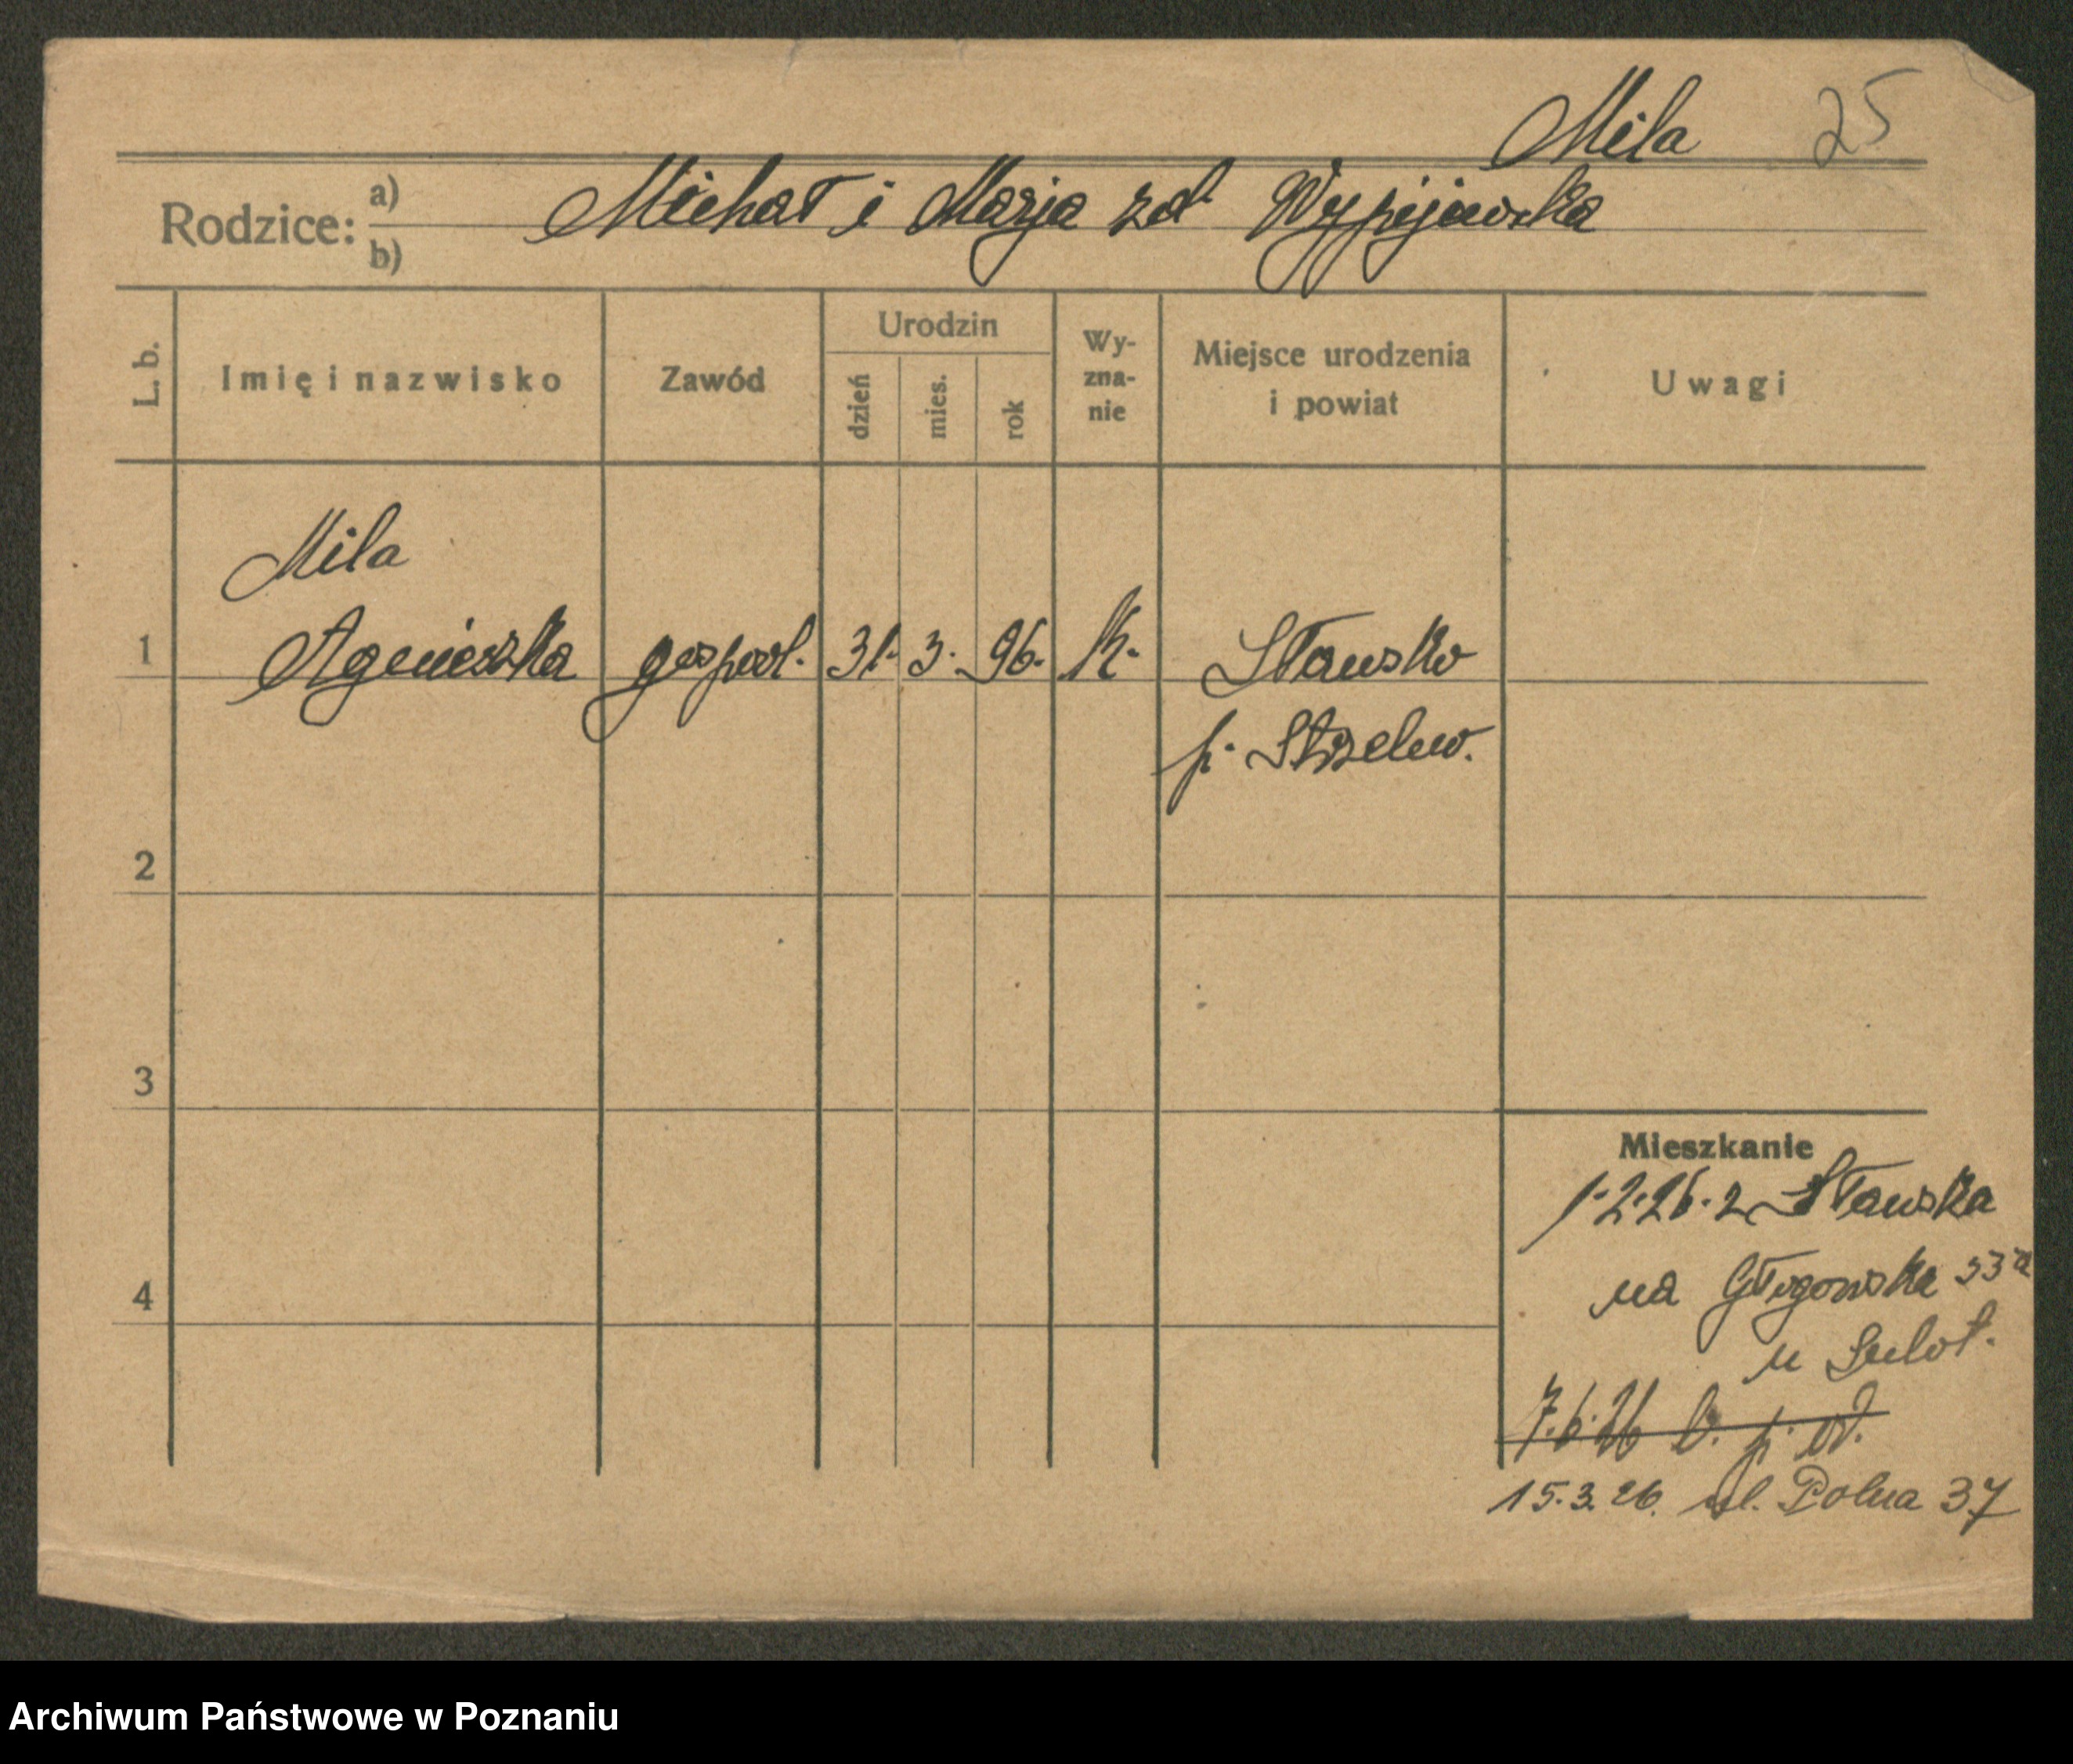 Mila 25
Rodzice: a) b) Michał i Marja zd Wypijewska
L. b.
Imię i nazwisko
Zawód
Urodzin
dzień
mies.
rok
Wy-
zna-
nie
Miejsce urodzenia
i powiat
Uwagi
Mila
1 Agnieszka gospod. 31. 3. 96. K. Sławsko
p. Strzelew.
2
3
4
Mieszkanie
1.2.26. z Sławska
na Głogowska 33a
u
7.6.26 b. p. od.
15.3.26. ul. Polna 37
Archiwum Państwowe w Poznaniu